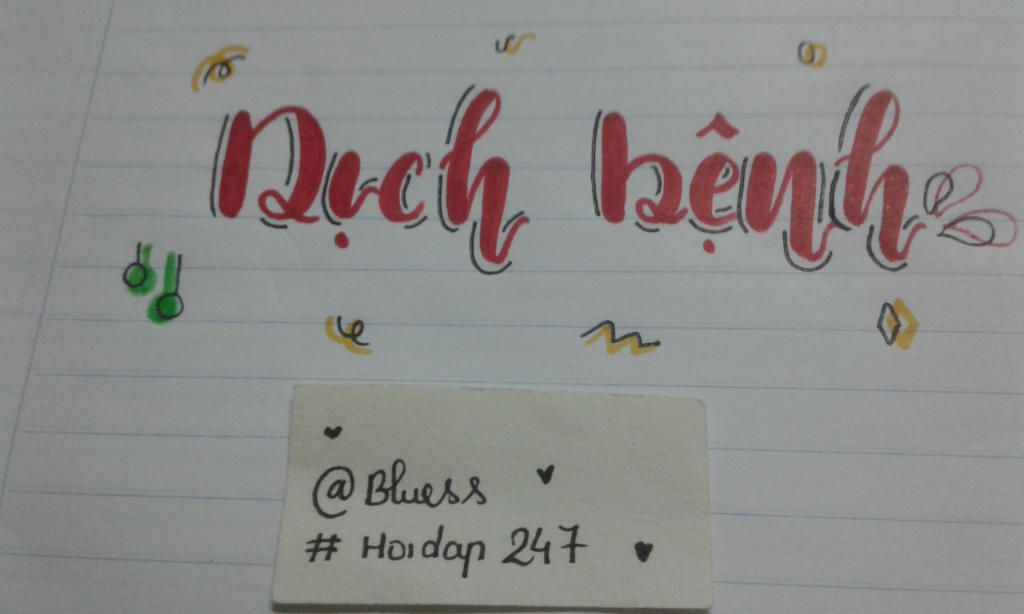 Dịch bệnh
@Bluess
# Hoidap 247